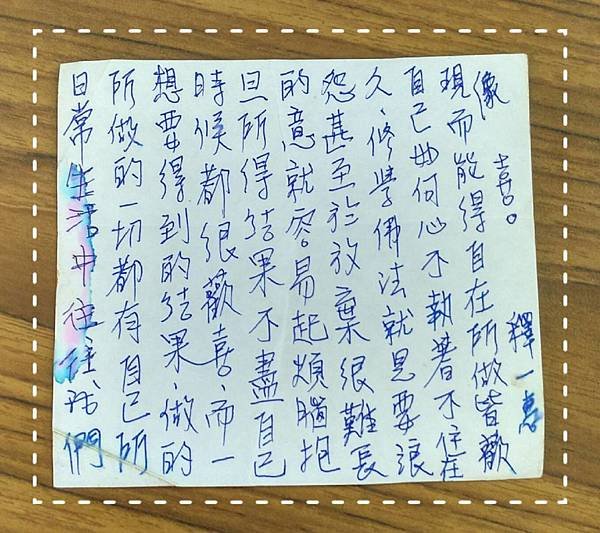 日常生活中往往我們
所做的一切都有自己所
想要得到的結果、做的
時候都很歡喜、而一
旦所得結果不盡自己
的意就容易起煩腦抱
怨甚至於放棄很難長
久、修學佛法就是要讓
自己如何心不執著不住在
現而能得自在所做皆歡
像 喜。
釋一惠